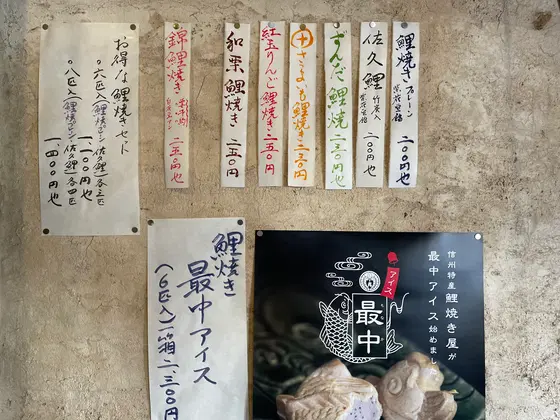 鯉焼き プレーン
二〇〇円也
佐久鯉 竹炭入
二〇〇円也
ずんだ鯉焼
二三〇円也
さつまいも鯉焼き
二三〇円
紅玉りんご鯉焼き
二五〇円
和栗鯉焼き
二五〇円
錦鯉焼き
二五〇円也
お得な鯉焼きセット
〇六匹入(鯉焼プレーン・佐久鯉)各三匹
〇八匹入(鯉焼プレーン・佐久鯉)各四匹
一、四〇〇円也
鯉焼き
最中アイス
(6匹入)一箱二、三〇〇円
信州特産鯉焼き屋が
最中アイス始めまし
アイス
最中